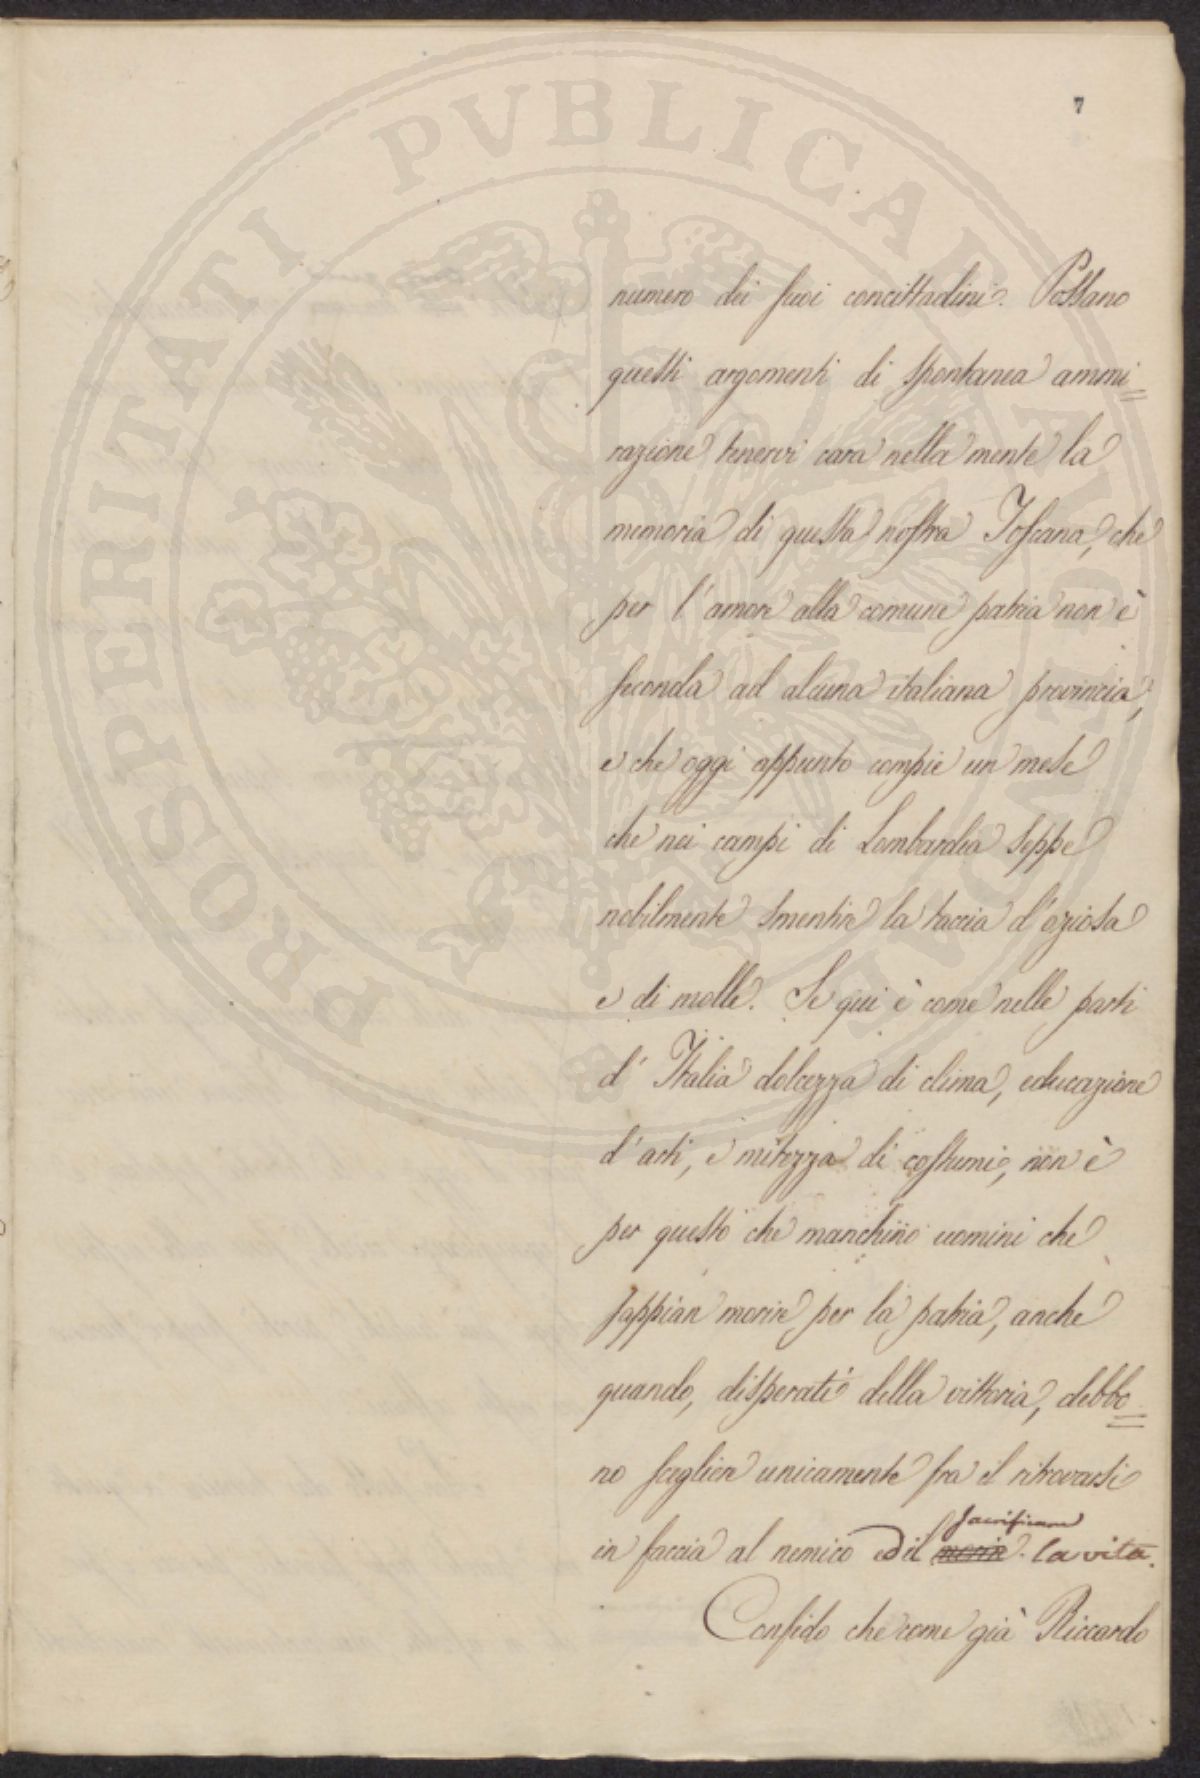 PROSPERITATI PVBLICAE AVGENDAE
7
numero dei suoi concittadini. Possano
questi argomenti di spontanea ammi=
razione tenervi cara nella mente la
memoria di questa nostra Toscana, che
per l'amore alla comune patria non è
seconda ad alcuna italiana provincia,
e che oggi appunto compie un mese
che nei campi di Lombardia seppe
nobilmente smentire la taccia d'oziosa
e di molle. Se qui è come nelle parti
d'Italia dolcezza di clima, educazione
d'arti, e mitezza di costumi, non è
per questo che manchino uomini che
sappian morire per la patria, anche
quando, disperati della vittoria, debbo=
no scegliere unicamente fra il ritrovarsi
sacrificare
in faccia al nemico ed il morire. la vita.
Confido che come già Riccardo